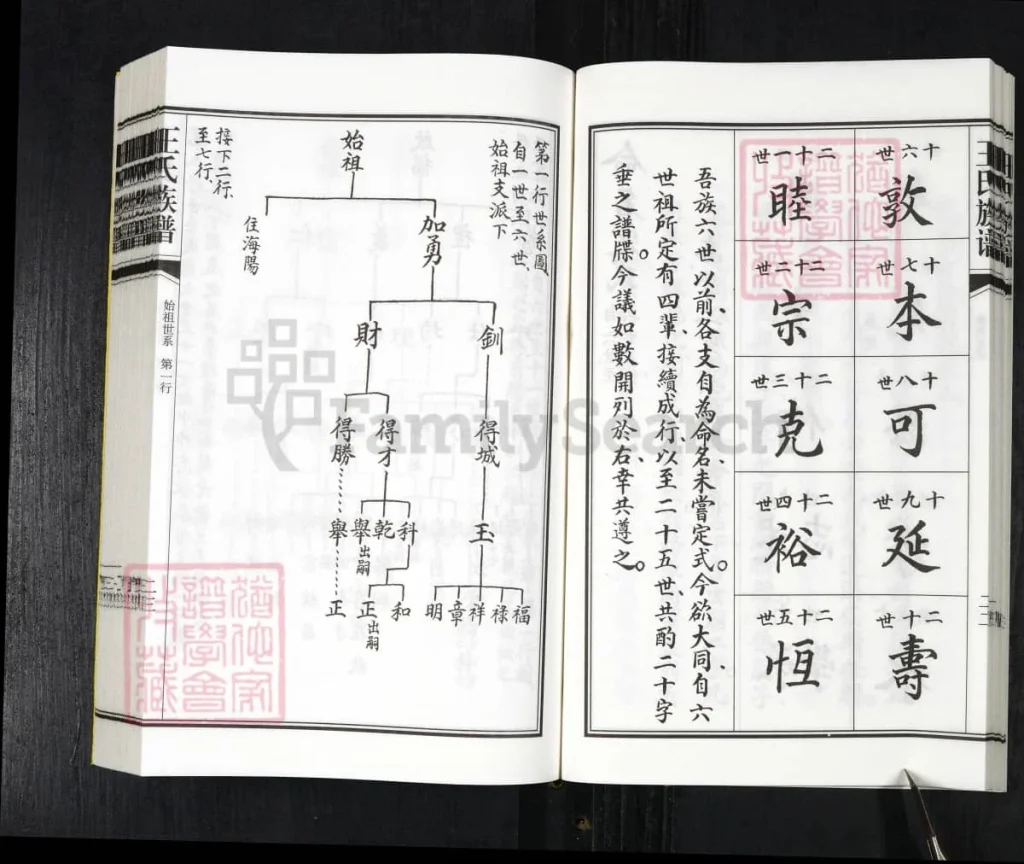 王氏族譜
十六世
敦
十七世
本
十八世
可
十九世
延
二十世
壽
二十一世
睦
二十二世
宗
二十三世
克
二十四世
裕
二十五世
恒
吾族六世以前、各支自為命名、未嘗定式。今欲大同、自六
世祖所定有四輩、接續成行、以至二十五世、共酌二十字
垂之譜牒。今議如數開列於右、幸共遵之。
第一行世系圖、
自一世至六世、
始祖支派下
始祖
加勇
住海陽
釗
財
得城
得才
得勝
玉
科
乾
舉出嗣
舉
福
祿
祥
章
明
和
正出嗣
正
接下二行、
至七行、
王氏族譜
始祖世系 第一行
FamilySearch